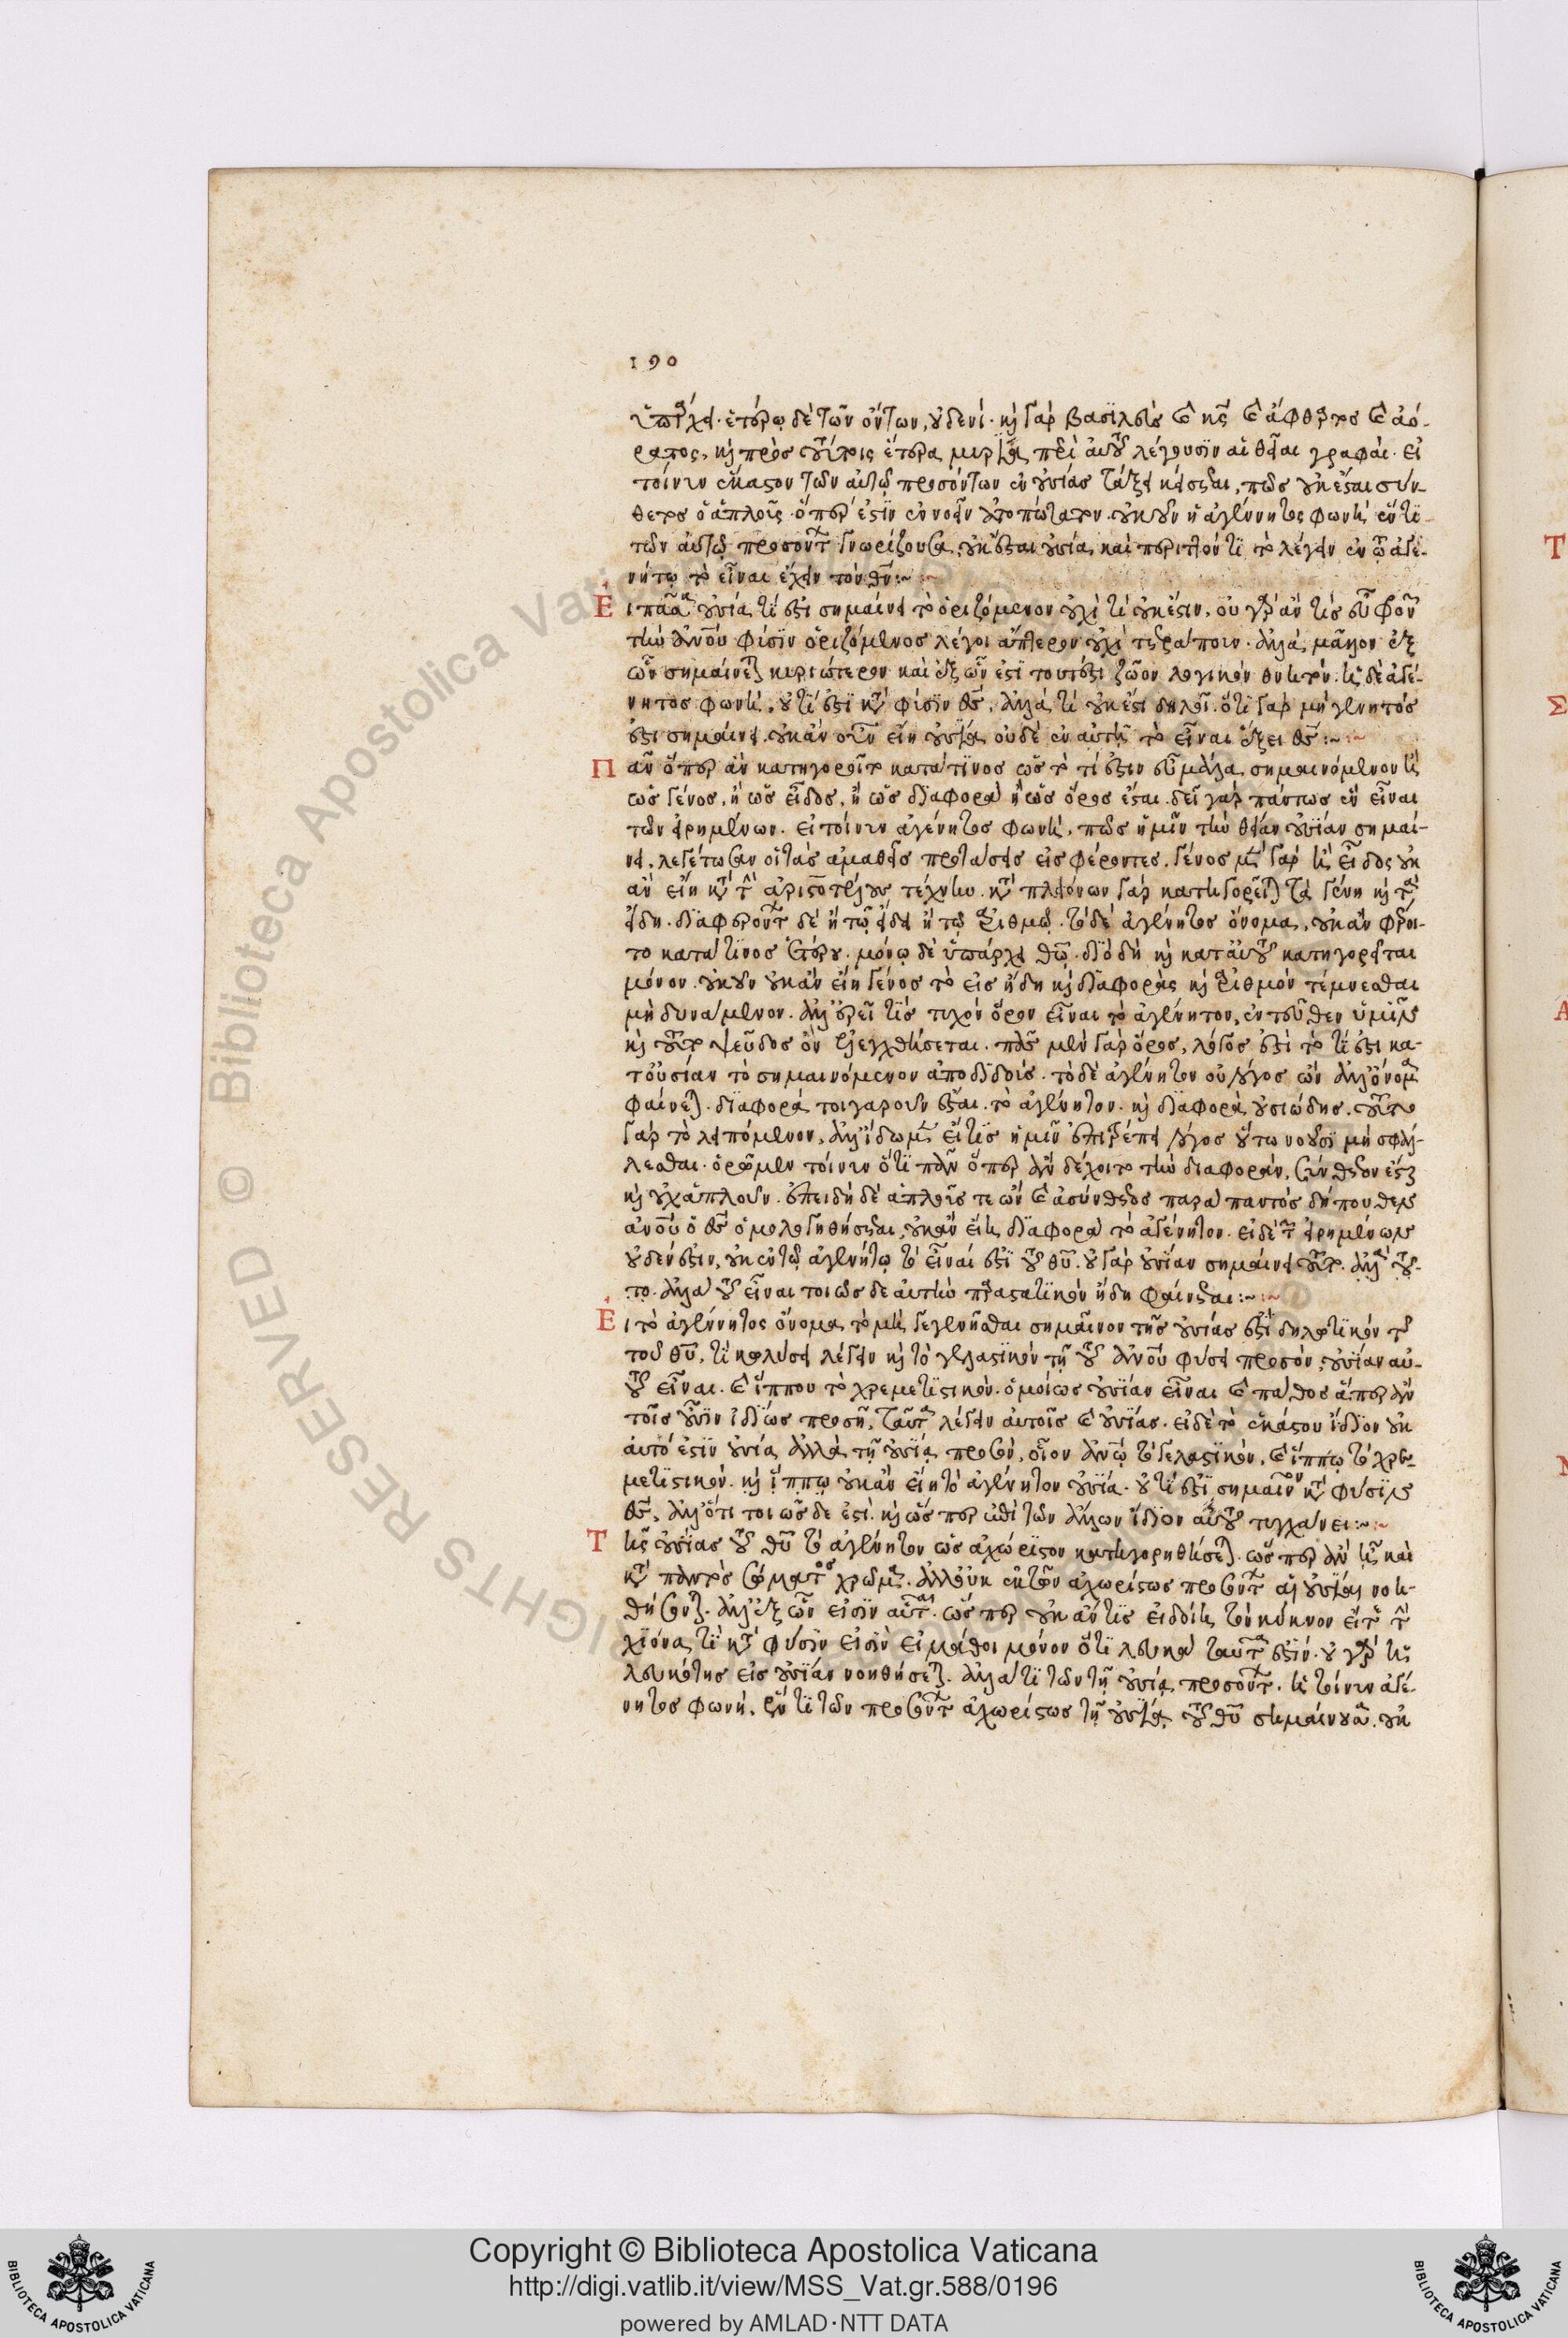 190
ὑπάρχει. ἑτέρῳ δὲ τῶν ὄντων, οὐδενί. καὶ γὰρ βασιλεὺς καὶ κς καὶ ἄφθαρτος καὶ ἀό-
ρατος, καὶ πρὸς τούτοις ἕτερα μυρία περὶ αὐτοῦ λέγουσιν αἱ θεῖαι γραφαί. εἰ
τοίνυν ἕκαστον τῶν αὐτῷ προσόντων ἐν οὐσίας τάξει κείσεται, πῶς οὐκ ἔσται σύν-
θετος ὁ ἁπλοῦς. ὅπερ ἐστὶν ἐννοεῖν ἀτοπώτατον. οὐκοῦν ἡ ἀγέννητος φωνὴ ἕν τι
τῶν αὐτῷ προσόντων γνωρίζουσα, οὐκ ἔσται οὐσία. καὶ περιττόν τι τὸ λέγειν ἐν τῷ ἀγε-
νήτῳ τὸ εἶναι ἔχειν τὸν θν :~
Εἰ πᾶσα οὐσία τί ἐστι σημαίνει τὸ ὁριζόμενον οὐχὶ τί οὐκ ἔστιν, οὐ γὰρ ἄν τις εὖ φρονῶν
τὴν ἀνου φύσιν ὁριζόμενος λέγοι ἄπτερον οὐχὶ τετράπουν. ἀλλὰ μᾶλλον ἐξ
ὧν σημαίνεται κυριώτερον καὶ ἐξ ὧν ἐστι τουτέστι ζῶον λογικὸν θνητόν. ἡ δὲ ἀγέ-
νητος φωνὴ, οὐ τί ἐστι κατὰ φύσιν θς, ἀλλὰ τί οὐκ ἔστι δηλοῖ. ὅτι γὰρ μὴ γενητός
ἐστι σημαίνει. οὐκ ἂν οὖν εἴη οὐσία, οὐδὲ ἐν αὐτῇ τὸ εἶναι ἕξει θς :~
Πᾶν ὅπερ ἂν κατηγοροῖτο κατά τινος ὡς τὸ τί ἐστιν εὖ μάλα σημαινόμενον ἢ
ὡς γένος, ἢ ὡς εἶδος, ἢ ὡς διαφορὰ ἢ ὡς ὅρος ἔσται. δεῖ γὰρ πάντως ἓν εἶναι
τῶν εἰρημένων. εἰ τοίνυν ἀγένητος φωνὴ, πῶς ἡμῖν τὴν θείαν οὐσίαν σημαί-
νει, λεγέτωσαν οἱ τὰς ἀμαθεῖς προτάσεις εἰσφέροντες. γένος μὲν γὰρ ἢ εἶδος οὐκ
ἂν εἴη κατὰ τὴν ἀριστοτέλους τέχνην. κατὰ πλειόνων γὰρ κατηγορεῖται τὰ γένη καὶ τὰ
εἴδη. διαφερόντων δὲ ἢ τῷ εἴδει ἢ τῷ ἀριθμῷ. τὸ δὲ ἀγένητος ὄνομα, οὐκ ἂν φέροι-
το κατά τινος ἑτέρου. μόνῳ δὲ ὑπάρχει θῷ. διὸ δὴ καὶ κατ αὐτοῦ κατηγορεῖται
μόνον. οὐκοῦν οὐκ ἂν εἴη γένος τὸ εἰς ἤδη καὶ διαφορὰς καὶ ἀριθμὸν τέμνεσθαι
μὴ δυνάμενον. ἀλλ ἐρεῖ τίς τυχὸν ὅρον εἶναι τὸ ἀγένητον, ἐντεῦθεν ὑμῖν
καὶ τοῦτο ψεῦδος ὂν ἐλεγχθήσεται. πᾶς μὲν γὰρ ὅρος, λόγος ἐστὶ τὸ τί ἐστι κα-
τ οὐσίαν τὸ σημαινόμενον ἀποδιδούς. τὸ δὲ ἀγένητον οὐ λόγος ὢν ἀλλ ὄνομα
φαίνεται. διαφορὰ τοιγαροῦν ἔσται. τὸ ἀγένητον. καὶ διαφορὰ οὐσιώδης. τοῦτο
γὰρ τὸ λειπόμενον, ἀλλ ἴδωμεν εἴ τις ἡμῖν ἐπιτρέπει λόγος οὕτω νοοῦσι μὴ σφάλ-
λεσθαι. ὁρῶμεν τοίνυν ὅτι πᾶν ὅπερ ἂν δέχοιτο τὴν διαφορὰν, σύνθετον ἔσται
καὶ οὐχ ἁπλοῦν. ἐπειδὴ δὲ ἁπλοῦς τε ὢν καὶ ἀσύνθετος παρὰ παντὸς δήπουθεν
ἀνου ὁ θς ὁμολογηθήσεται, οὐκ ἂν εἴη διαφορὰ τὸ ἀγένητον. εἰ δὲ τῶν εἰρημένων
οὐδέν ἐστιν, οὐκ ἐν τῷ ἀγενήτῳ τὸ εἶναί ἐστι τοῦ θυ. οὐ γὰρ οὐσίαν σημαίνει τοῦτο. ἀλλὰ τοῦ-
το. ἀλλὰ τοῦ εἶναι τοιῶσδε αὐτὴν παραστατικὸν ἤδη φαίνεται :~
Εἰ τὸ ἀγέννητος ὄνομα τὸ μὴ γεγενῆσθαι σημαῖνον τῆς οὐσίας ἐστὶ δηλωτικὸν τῆς
τοῦ θυ, τί κωλύσει λέγειν καὶ τὸ γελαστικὸν τῇ τοῦ ἀνου φύσει προσόν, οὐσίαν αὐ-
τοῦ εἶναι. καὶ ἵππου τὸ χρεμετιστικὸν. ὁμοίως οὐσίαν εἶναι καὶ πάθος ἅπερ ἂν
τοῖς οὖσιν ἰδίως προσῇ, ταῦτα λέγειν αὐτοῖς καὶ οὐσίας. εἰ δὲ τὸ ἑκάστου ἴδιον οὐκ
αὐτό ἐστιν οὐσία ἀλλὰ τῇ οὐσίᾳ προσὸν, οἷον ἀνῳ τὸ γελαστικὸν, καὶ ἵππῳ τὸ χρε-
μετιστικὸν. καὶ ἵππῳ οὐκ ἂν εἴη τὸ ἀγένητον οὐσία. οὐ τί ἐστι σημαῖνον κατὰ φύσιν
θς, ἀλλ ὅτι τοιῶσδε ἐστὶ. καὶ ὥσπερ ἐπὶ τῶν ἄλλων ἴδιον αὐτοῦ τυγχάνει :~
Τῆς οὐσίας τοῦ θυ τὸ ἀγένητον ὡς ἀχώριστον κατηγορηθήσεται. ὥσπερ ἂν ἦ καὶ
κατὰ παντὸς σώματος χρῶμα. ἀλλ οὐκ ἐκ τῶν ἀχωρίστως προσόντων αἱ οὐσίαι νοη-
θήσονται. ἀλλ ἐξ ὧν εἰσὶν αὗται. ὥσπερ οὐκ ἄν τις εἰδοίη τὸν κύκνον εἴτε τὴν
χιόνα τί κατὰ φύσιν εἰσὶν εἰ μάθοι μόνον ὅτι λευκὰ ταῦτά ἐστιν. οὐ γὰρ ἡ
λευκότης εἰς οὐσίαν νοηθήσεται. ἀλλά τι τῶν τῇ οὐσίᾳ προσόντων. ἡ τοίνυν ἀγέ-
νητος φωνή, ἕν τι τῶν προσόντων ἀχωρίστως τῇ οὐσίᾳ τοῦ θυ σημαίνουσα. οὐκ
Copyright © Biblioteca Apostolica Vaticana
http://digi.vatlib.it/view/MSS_Vat.gr.588/0196
powered by AMLAD·NTT DATA